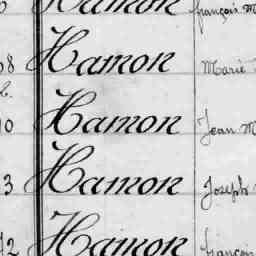 Hamon François M
8 Hamon Marie
b.
10 Hamon Jean M
3 Hamon Joseph
12 Hamon François